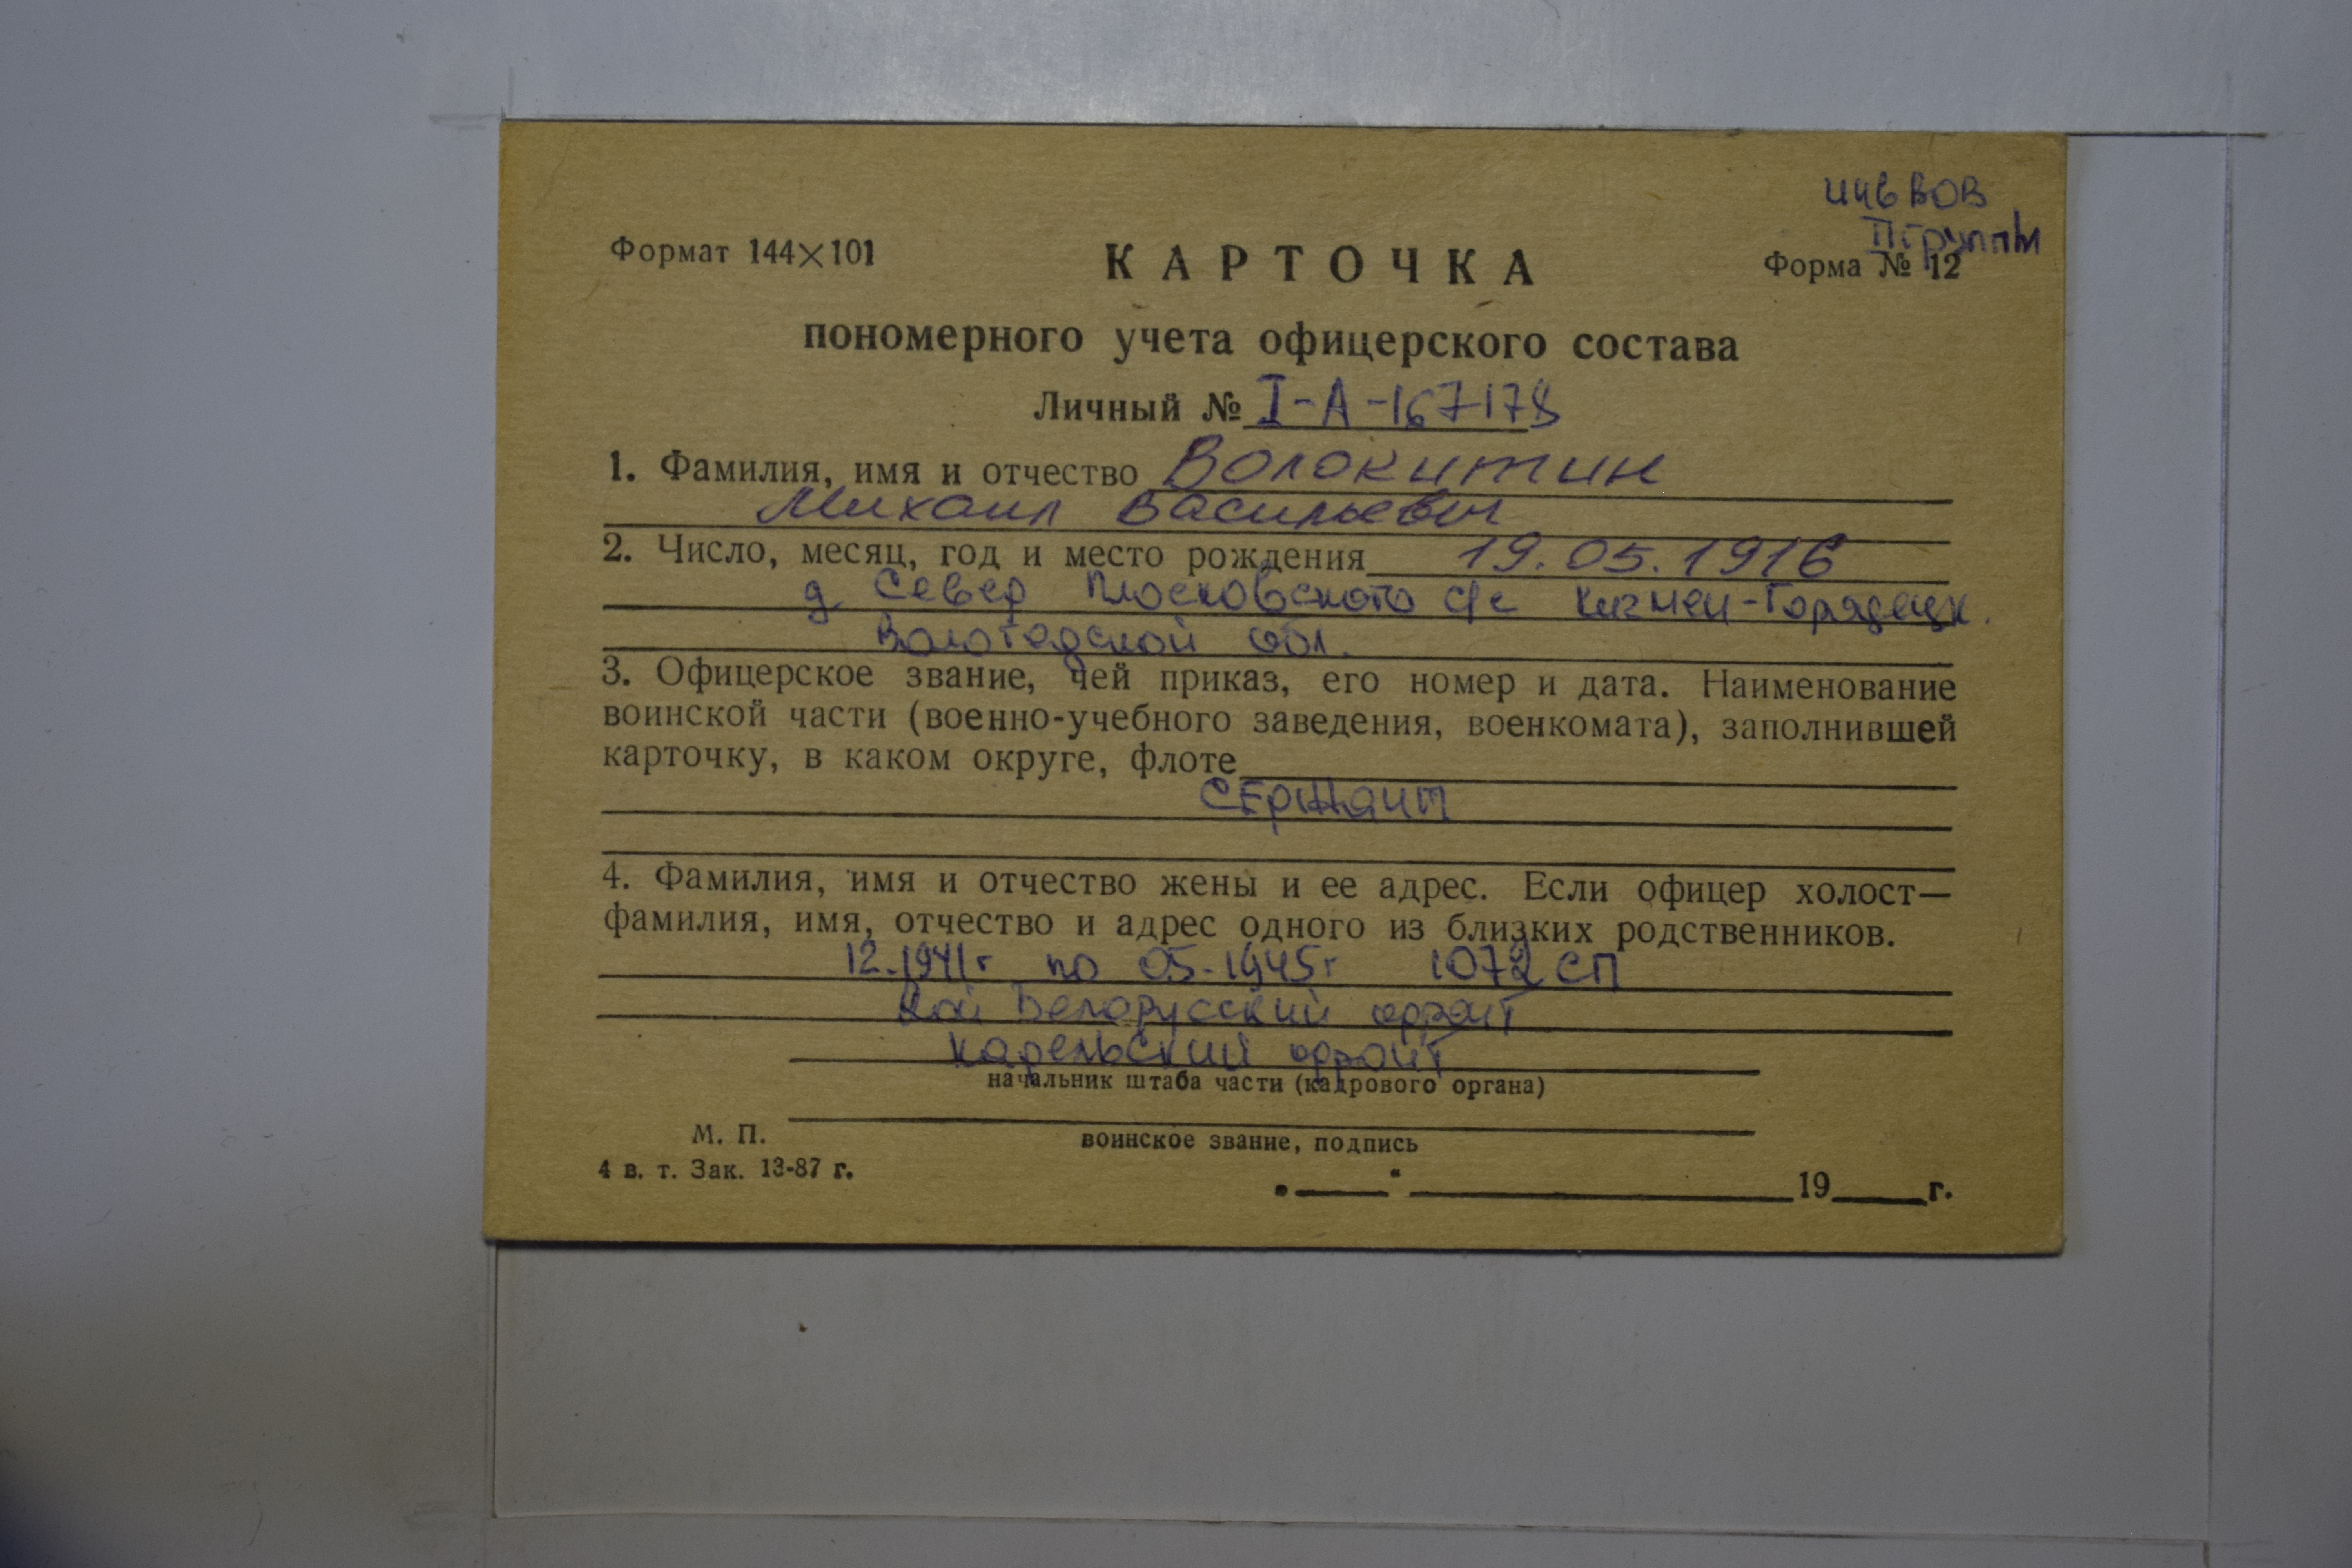 инв ВОВ
II группы
Формат 144×101
КАРТОЧКА
Форма № 12
пономерного учета офицерского состава
Личный № I-А-167178
1. Фамилия, имя и отчество Волокитин
Михаил Васильевич
2. Число, месяц, год и место рождения 19.05.1916
д Север Плосковского с/с Кичмен-Городецк.
Вологодской обл.
3. Офицерское звание, чей приказ, его номер и дата. Наименование
воинской части (военно-учебного заведения, военкомата), заполнившей
карточку, в каком округе, флоте
СЕржант
4. Фамилия, имя и отчество жены и ее адрес. Если офицер холост—
фамилия, имя, отчество и адрес одного из близких родственников.
12.1941г по 05-1945г 1072 СП
Белорусский фронт
Карельский фронт
начальник штаба части (кадрового органа)
М. П.
воинское звание, подпись
4 в. т. Зак. 13-87 г.
„ “ 19 г.